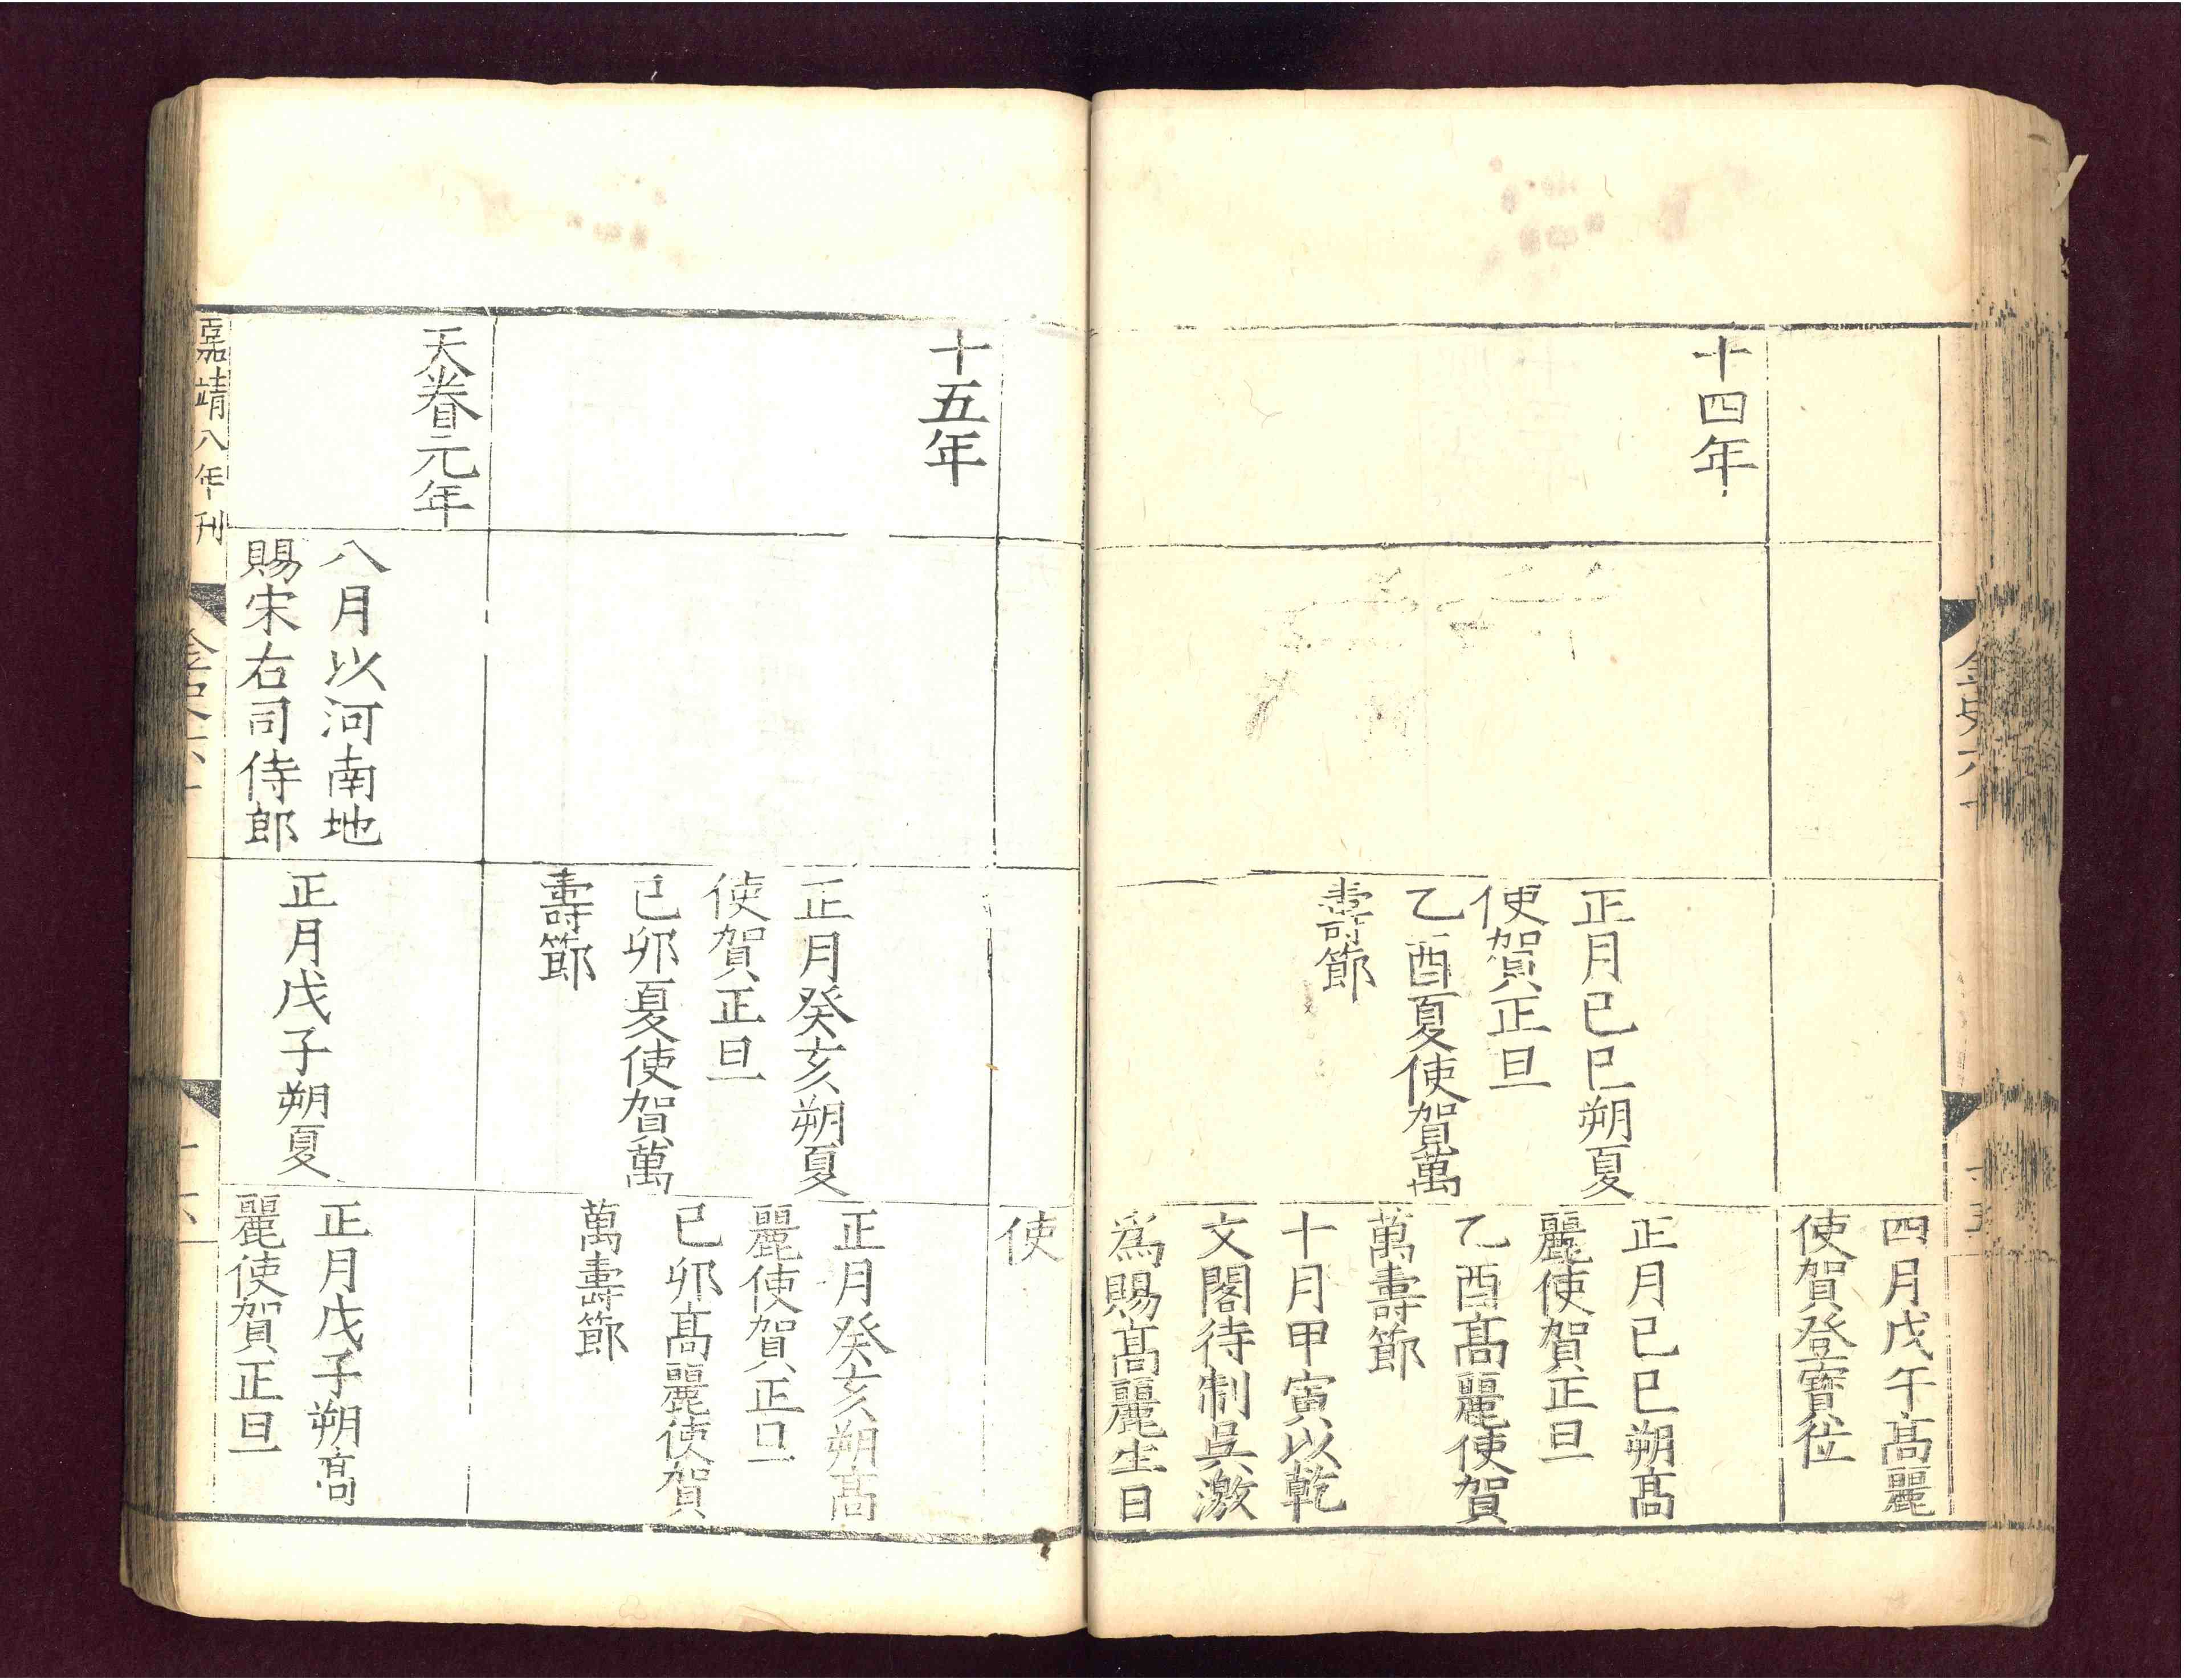 金史六十
十五
四月戊午髙麗
使賀登寶位
十四年
正月已巳朔夏
使賀正旦
乙酉夏使賀萬
壽節
正月已巳朔髙
麗使賀正旦
乙酉髙麗使賀
萬壽節
十月甲寅以乾
文閣待制吳激
為賜髙麗生日
使
十五年
正月癸亥朔夏
使賀正旦
已卯夏使賀萬
壽節
正月癸亥朔髙
麗使賀正旦
已卯髙麗使賀
萬壽節
天眷元年
八月以河南地
賜宋右司侍郎
正月戊子朔夏
正月戊子朔髙
麗使賀正旦
嘉靖八年刊
金史六十